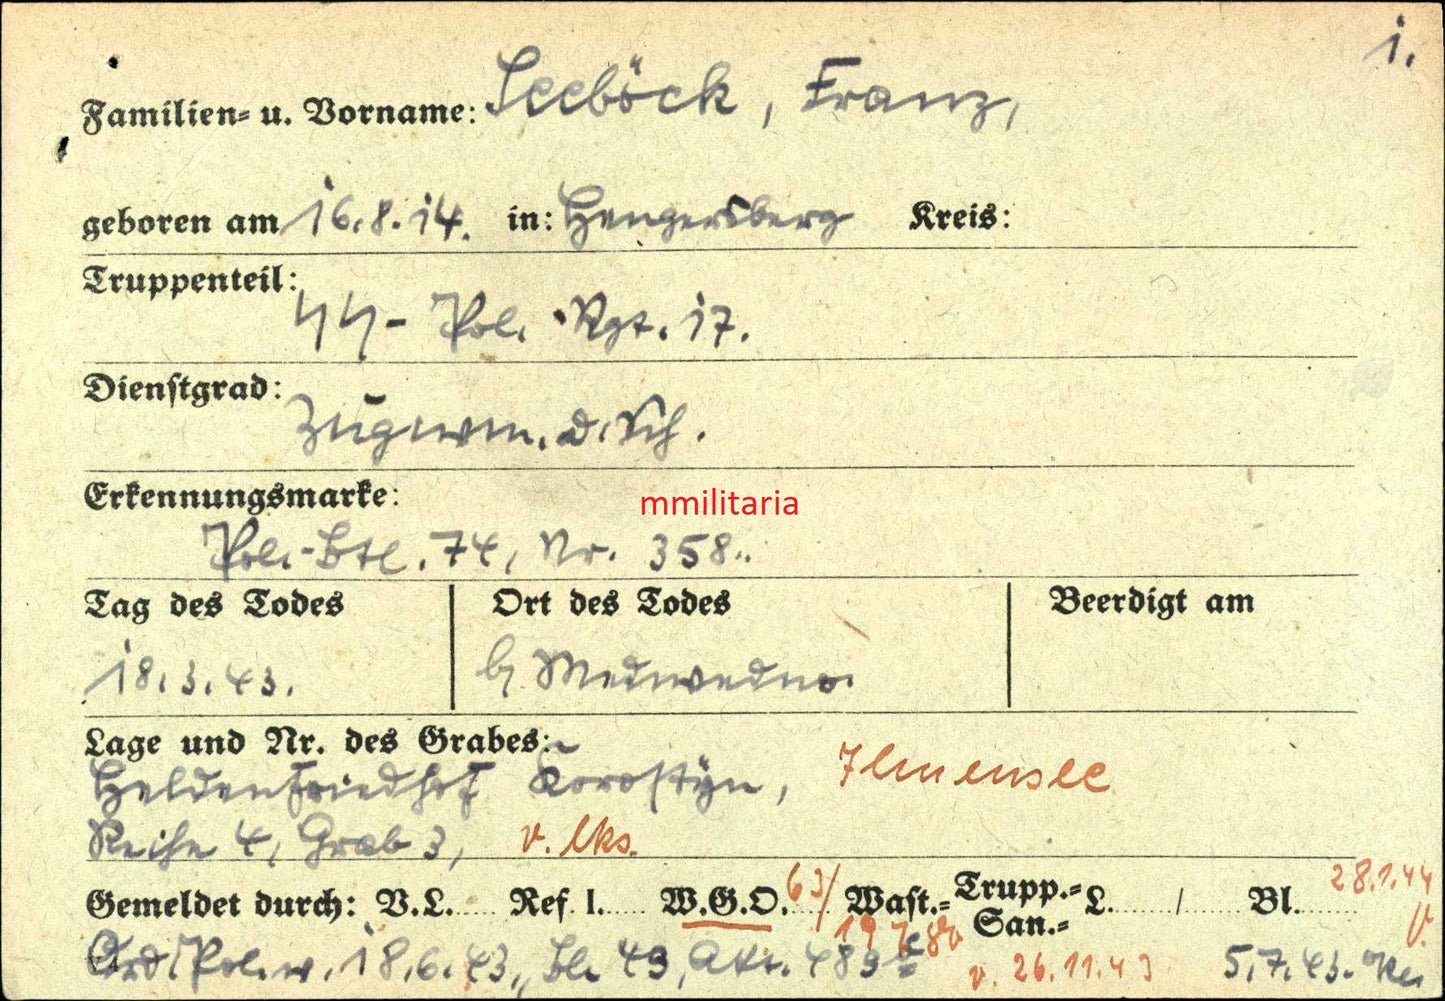 i.
Familien- u. Vorname: Seeböck, Franz,
geboren am 16.8.14. in: Hengersberg Kreis:
Truppenteil:
SS-Pol. Rgt. 17.
Dienstgrad:
Zugwm. d. Sch.
Erkennungsmarke:
mmilitaria
Pol.-Btl. 74, Nr. 358.
Tag des Todes Ort des Todes Beerdigt am
18.3.43. b. Medwedno
Lage und Nr. des Grabes:
Heldenfriedhof Korostyn, Ilmensee
Reihe 4, Grab 3, v. lks.
28.1.44
Gemeldet durch: V.L. Ref I. W.G.O. 63/ Wast.- Trupp.- San.- L. / Bl.
Ord. Pol. v. 18.6.43, Bl. 49, v. 26.11.43 5.7.43.